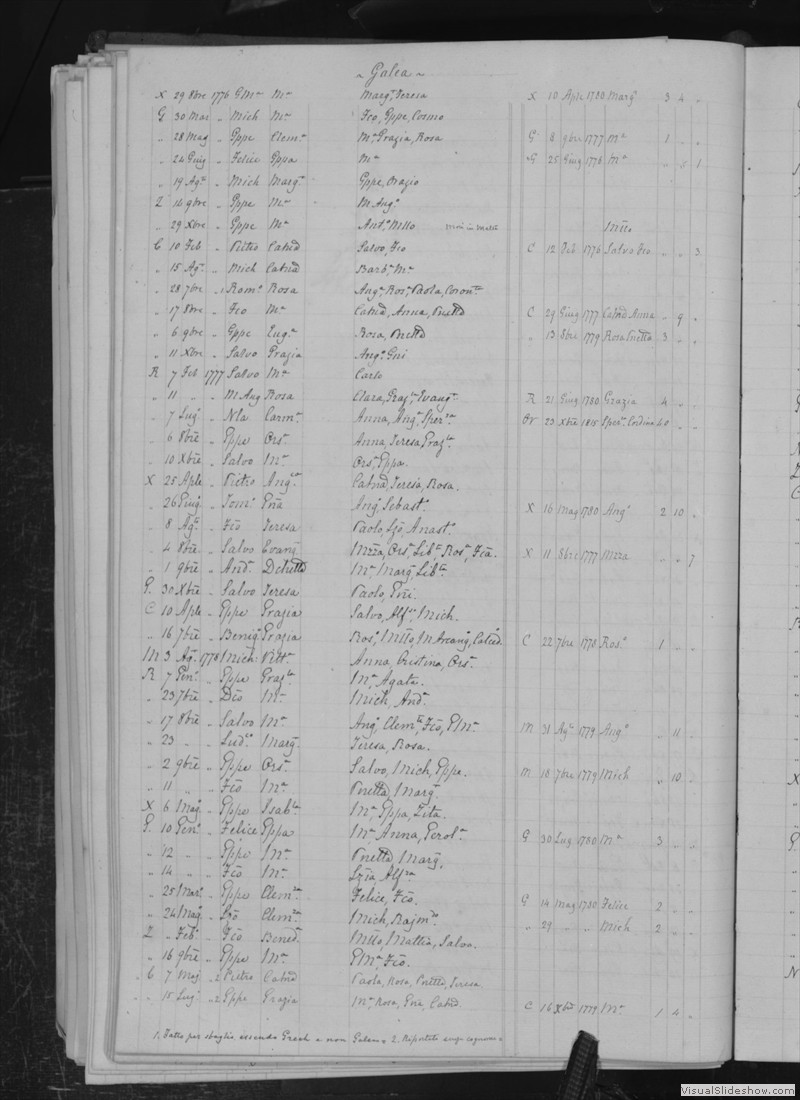 ~ Galea ~
X 29 8bre 1776 GMa Ma Marga, Teresa X 10 Aple 1780 Marga 3 4 "
G 30 Mar " Mich Ma Fco, Gppe, Cosmo
" 28 Mag " Gppe Clema Ma Grazia, Rosa G 8 9bre 1777 Ma 1 " "
" 24 Giug " Felice Gppa Ma G 25 Giug 1776 Ma " " 1
" 19 Ago " Mich Marga Gppe, Orazio
Z 14 9bre " Gppe Ma M Ango
" 29 Xbre " Gppe Ma Anto Mllo
C 10 Feb " Pietro Catna Salvo, Fco C 12 Feb 1776 Salvo Fco " " 3
" 15 Ago " Mich Catna Barba Ma
" 28 7bre " Romo Rosa Anga, Rosa, Paola, Corona
" 17 8bre " Fco Ma Catna, Anna, Pnetta C 29 Giug 1777 Catna Anna " 9 "
" 6 9bre " Gppe Euga Rosa, Pnetta " 13 8bre 1779 Rosa Pnetta 3 " "
" 11 Xbre " Salvo Grazia Ango Gni
R 7 Feb 1777 Salvo Ma Carlo
" 11 " " M Ang Rosa Clara, Graza, Evanga R 21 Giug 1780 Grazia 4 " "
" 7 Lug " Nla Carma Anna, Anga, Spera Or 23 Xbre 1815 Spera Cordina 40 " "
" 6 8bre " Gppe Orsa Anna, Teresa, Graza
" 10 Xbre " Salvo Ma Orsa, Gppa
X 25 Aple " Pietro Anga Catna, Teresa, Rosa.
" 26 Giug " Tomo Gna Ango Sebasto X 16 Mag 1780 Ango 2 10 "
" 8 Ago " Fco Teresa Paolo, Lzo, Anasta
" 4 8bre " Salvo Evanga Mzza, Orsa, Liba, Rosa, Fca. X 11 8bre 1777 Mzza " " 7
" 1 9bre " Ando Dcletta Ma, Marga, Liba
G 30 Xbre " Salvo Teresa Paolo, Gni.
C 10 Aple " Gppe Grazia Salvo, Alfo, Mich.
" 16 7bre " Benigo Grazia Rosa, Mllo, M Arcang, Catna. C 22 7bre 1778 Rosa 1 " "
M 3 Ago 1778 Mich: Vitta Anna, Cristina, Orsa
R 7 Geno " Gppe Graza Ma, Agata.
" 23 7bre " Dco Ma Mich, Ando
" 17 8bre " Salvo Ma Ango, Clemte, Fco, GMa M 31 Ago 1779 Ango " 11 "
" 23 " " Ludco Marga Teresa, Rosa.
" 2 9bre " Gppe Orsa Salvo, Mich, Gppe. M 18 7bre 1779 Mich " 10 "
" 11 " " Fco Ma Pnetta, Marga
X 6 Mag " Gppe Isaba Ma, Gppa, Zita.
G 10 Geno " Felice Gppa Ma Anna, Gerola G 30 Lug 1780 Ma 3 " "
" 12 " " Gppe Ma Pnetta Marga
" 14 " " Fco Ma Lzia, Alfa
" 25 Mar " Gppe Clema Felice, Fco. G 14 Mag 1780 Felice 2 " "
" 24 Mag " Lzo Clema Mich, Rajmdo " 29 " " Mich 2 " "
Z " Feb " Fco Beneda Mllo, Mattia, Salvo.
" 16 9bre " Gppe Ma GMa, Fco.
C 7 Mag "2 Pietro Catna Paola, Rosa, Pnetta, Teresa.
" 15 Lug "2 Gppe Grazia Ma, Rosa, Gna, Catna C 16 Xbre 1779 Ma 1 4 "
1. Fatto per sbaglio essendo Grech e non Galea. 2. Riportato
VisualSlideshow.com